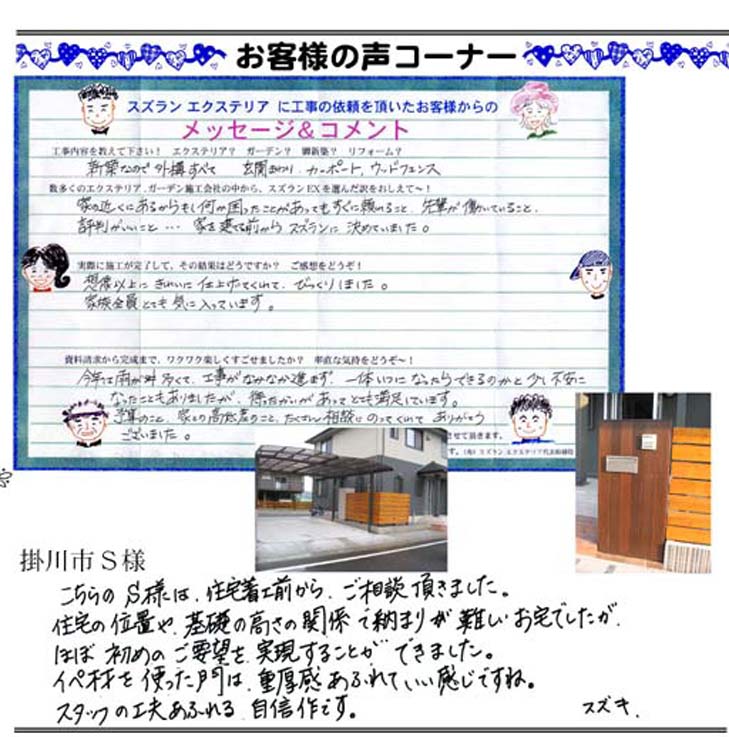 お客様の声コーナー
スズラン エクステリア に工事の依頼を頂いたお客様からの
メッセージ＆コメント
工事内容を教えて下さい！ エクステリア？ ガーデン？ 御新築？ リフォーム？
新築なので外構すべて 玄関まわり、カーポート、ウッドフェンス
数多くのエクステリア、ガーデン施工会社の中から、スズランEXを選んだ訳をおしえて～！
家の近くにあるからもし何か困ったことがあってもすぐに頼めること、先輩が働いていること、
評判がいいこと… 家を建てる前からスズランに決めていました。
実際に施工が完了して、その結果はどうですか？ ご感想をどうぞ！
想像以上にきれいに仕上げてくれて、びっくりしました。
家族全員とても気に入っています。
資料請求から完成まで、ワクワク楽しくすごせましたか？ 率直な気持をどうぞ～！
今年は雨が 多くて、工事がなかなか進まず、一体いつになったらできるのかと少し不安に
なったこともありましたが、待ったかいがあってとても満足しています。
予算のこと、家との高低差のこと、たくさん相談にのってくれてありがとう
ございました。
させて頂きます。
す。(有)スズラン エクステリア代表取締役
掛川市Ｓ様
こちらのS様は、住宅着工前から、ご相談頂きました。
住宅の位置や、基礎の高さの関係で納まりが難しいお宅でしたが、
ほぼ初めのご要望を実現することができました。
イペ材を使った門は、重厚感あふれていい感じですね。
スタッフの工夫あふれる自信作です。 スズキ.